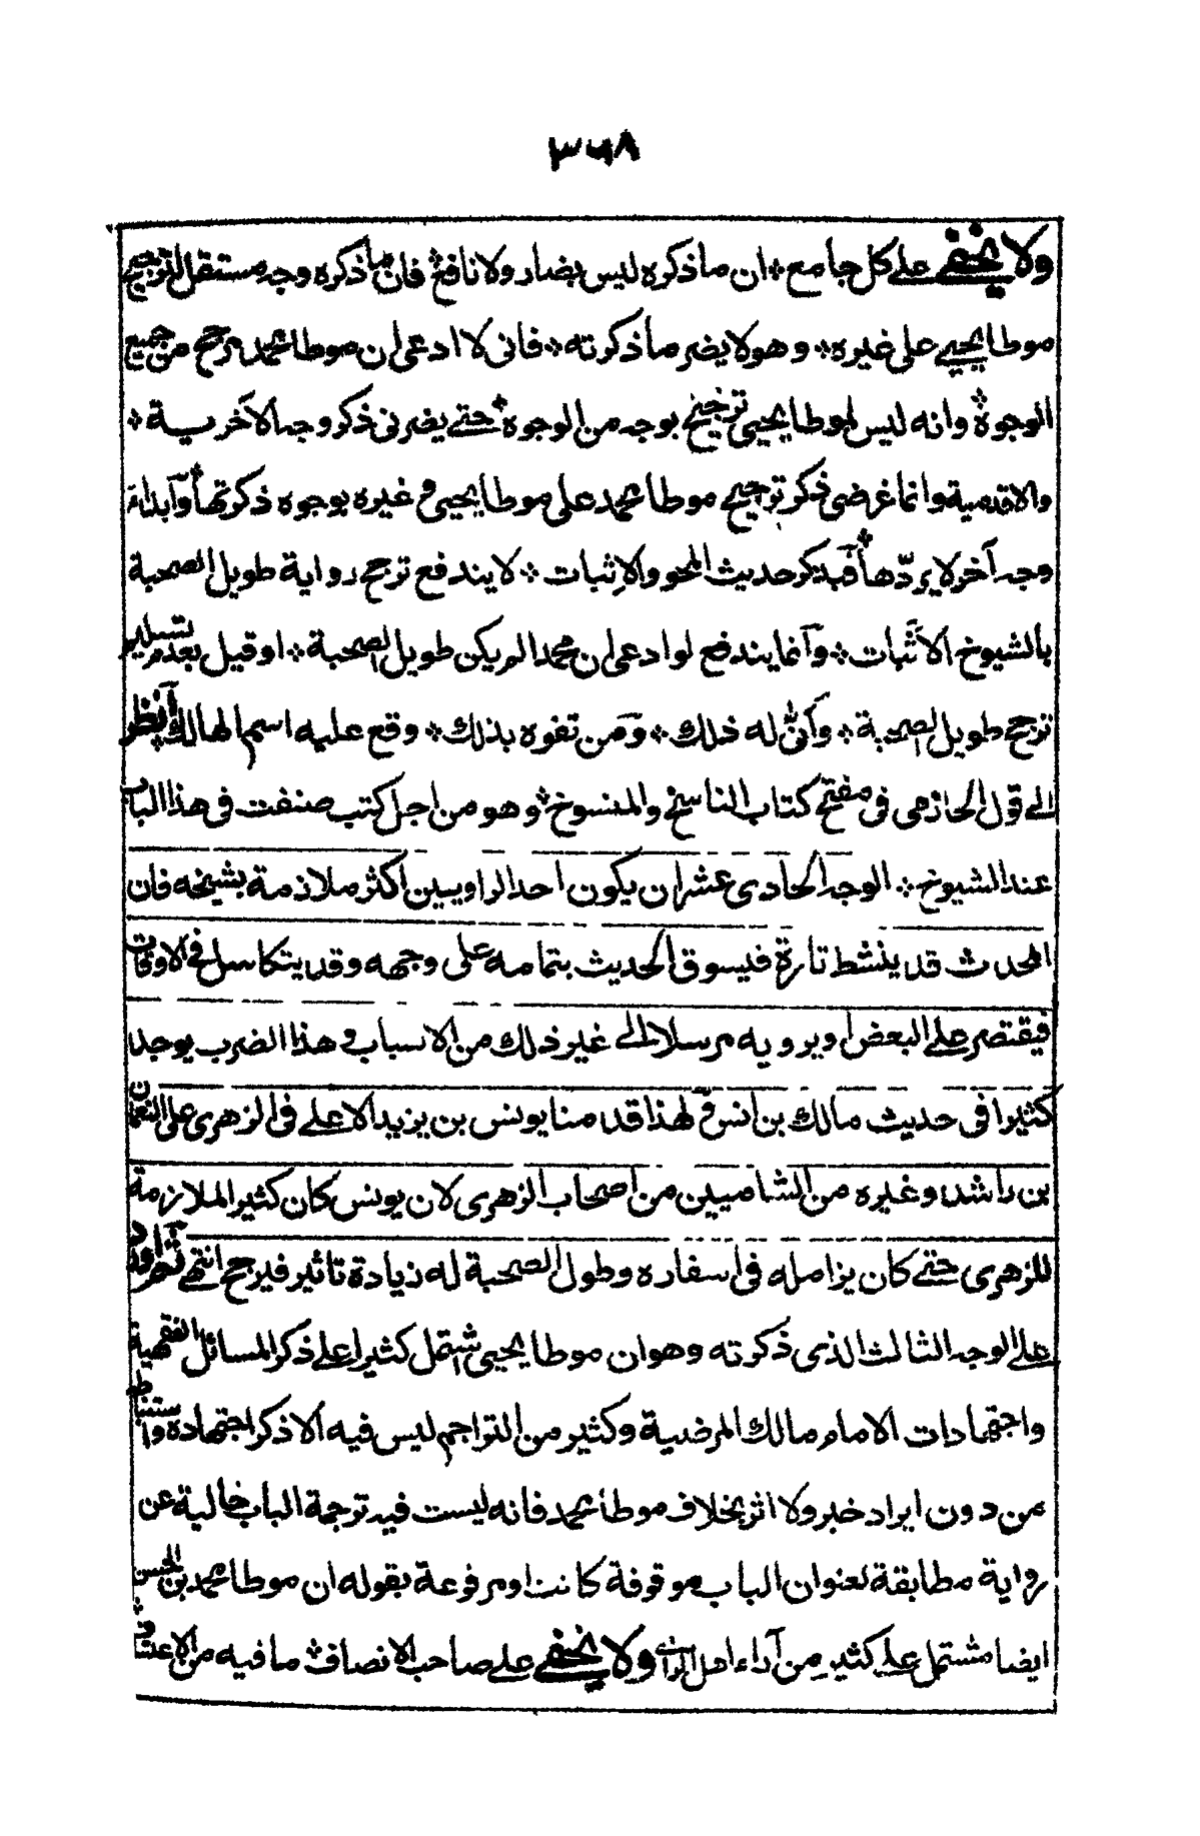 ٣٦٨
ولا يخفى على كل جامع * ان ما ذكره ليس بضار ولا نافع * فان ما ذكره وجه مستقل لترجيح
موطا يحيى على غيره * وهو لا يضر ما ذكرته * فانى لا ادعى ان موطا محمد مرجح من جميع
الوجوه * وانه ليس لموطا يحيى ترجيح بوجه من الوجوه * حتى يضرنى ذكر وجه الآخرية *
والاقدمية وانما غرضى ذكر ترجيح موطا محمد على موطا يحيى وغيره بوجوه ذكرتها * وآبداء
وجه آخر لا يردّها * فبذكر حديث المحو والاثبات * لا يندفع ترجح رواية طويل الصحبة
بالشيوخ الاثبات * وآنما يندفع لو ادعى ان محمدا لم يكن طويل الصحبة * او قيل بعدم تسليم
ترجح طويل الصحبة * وأنّى له ذلك * ومن تفوه بذلك * وقع عليه اسم الهالك * أنظر
الى قول الحازمى فى مفتح كتاب الناسخ والمنسوخ * وهو من اجل كتب صنفت فى هذا الباب
عند الشيوخ * الوجه الحادى عشر ان يكون احد الراويين اكثر ملازمة بشيخه فان
المحدث قد ينشط تارة فيسوق الحديث بتمامه على وجهه وقد يتكاسل فى الاوقات
فيقتصر على البعض او يرويه مرسلا الى غير ذلك من الاسباب وهذا الضرب يوجد
كثيرا فى حديث مالك بن انس ولهذا قدمنا يونس بن يزيد الاعلى فى الزهرى على النعمان
بن راشد وغيره من الشاميين من اصحاب الزهرى لان يونس كان كثير الملازمة
للزهرى حتى كان يزامله فى اسفاره وطول الصحبة له زيادة تاثير فيرجح انتهى ثم اورد
على الوجه الثالث الذى ذكرته وهو ان موطا يحيى اشتمل كثيرا على ذكر المسائل الفقهية
واجتهادات الامام مالك المرضية وكثير من التراجم ليس فيه الا ذكر اجتهاده واستنباطه
من دون ايراد خبر ولا اثر بخلاف موطا محمد فانه ليست فيه ترجمة الباب خالية عن
رواية مطابقة لعنوان الباب موقوفة كانت او مرفوعة بقوله ان موطا محمد بن الحسن
ايضا مشتمل على كثير من آراء اهل الراى ولا يخفى على صاحب الانصاف * ما فيه من الاعتساف *